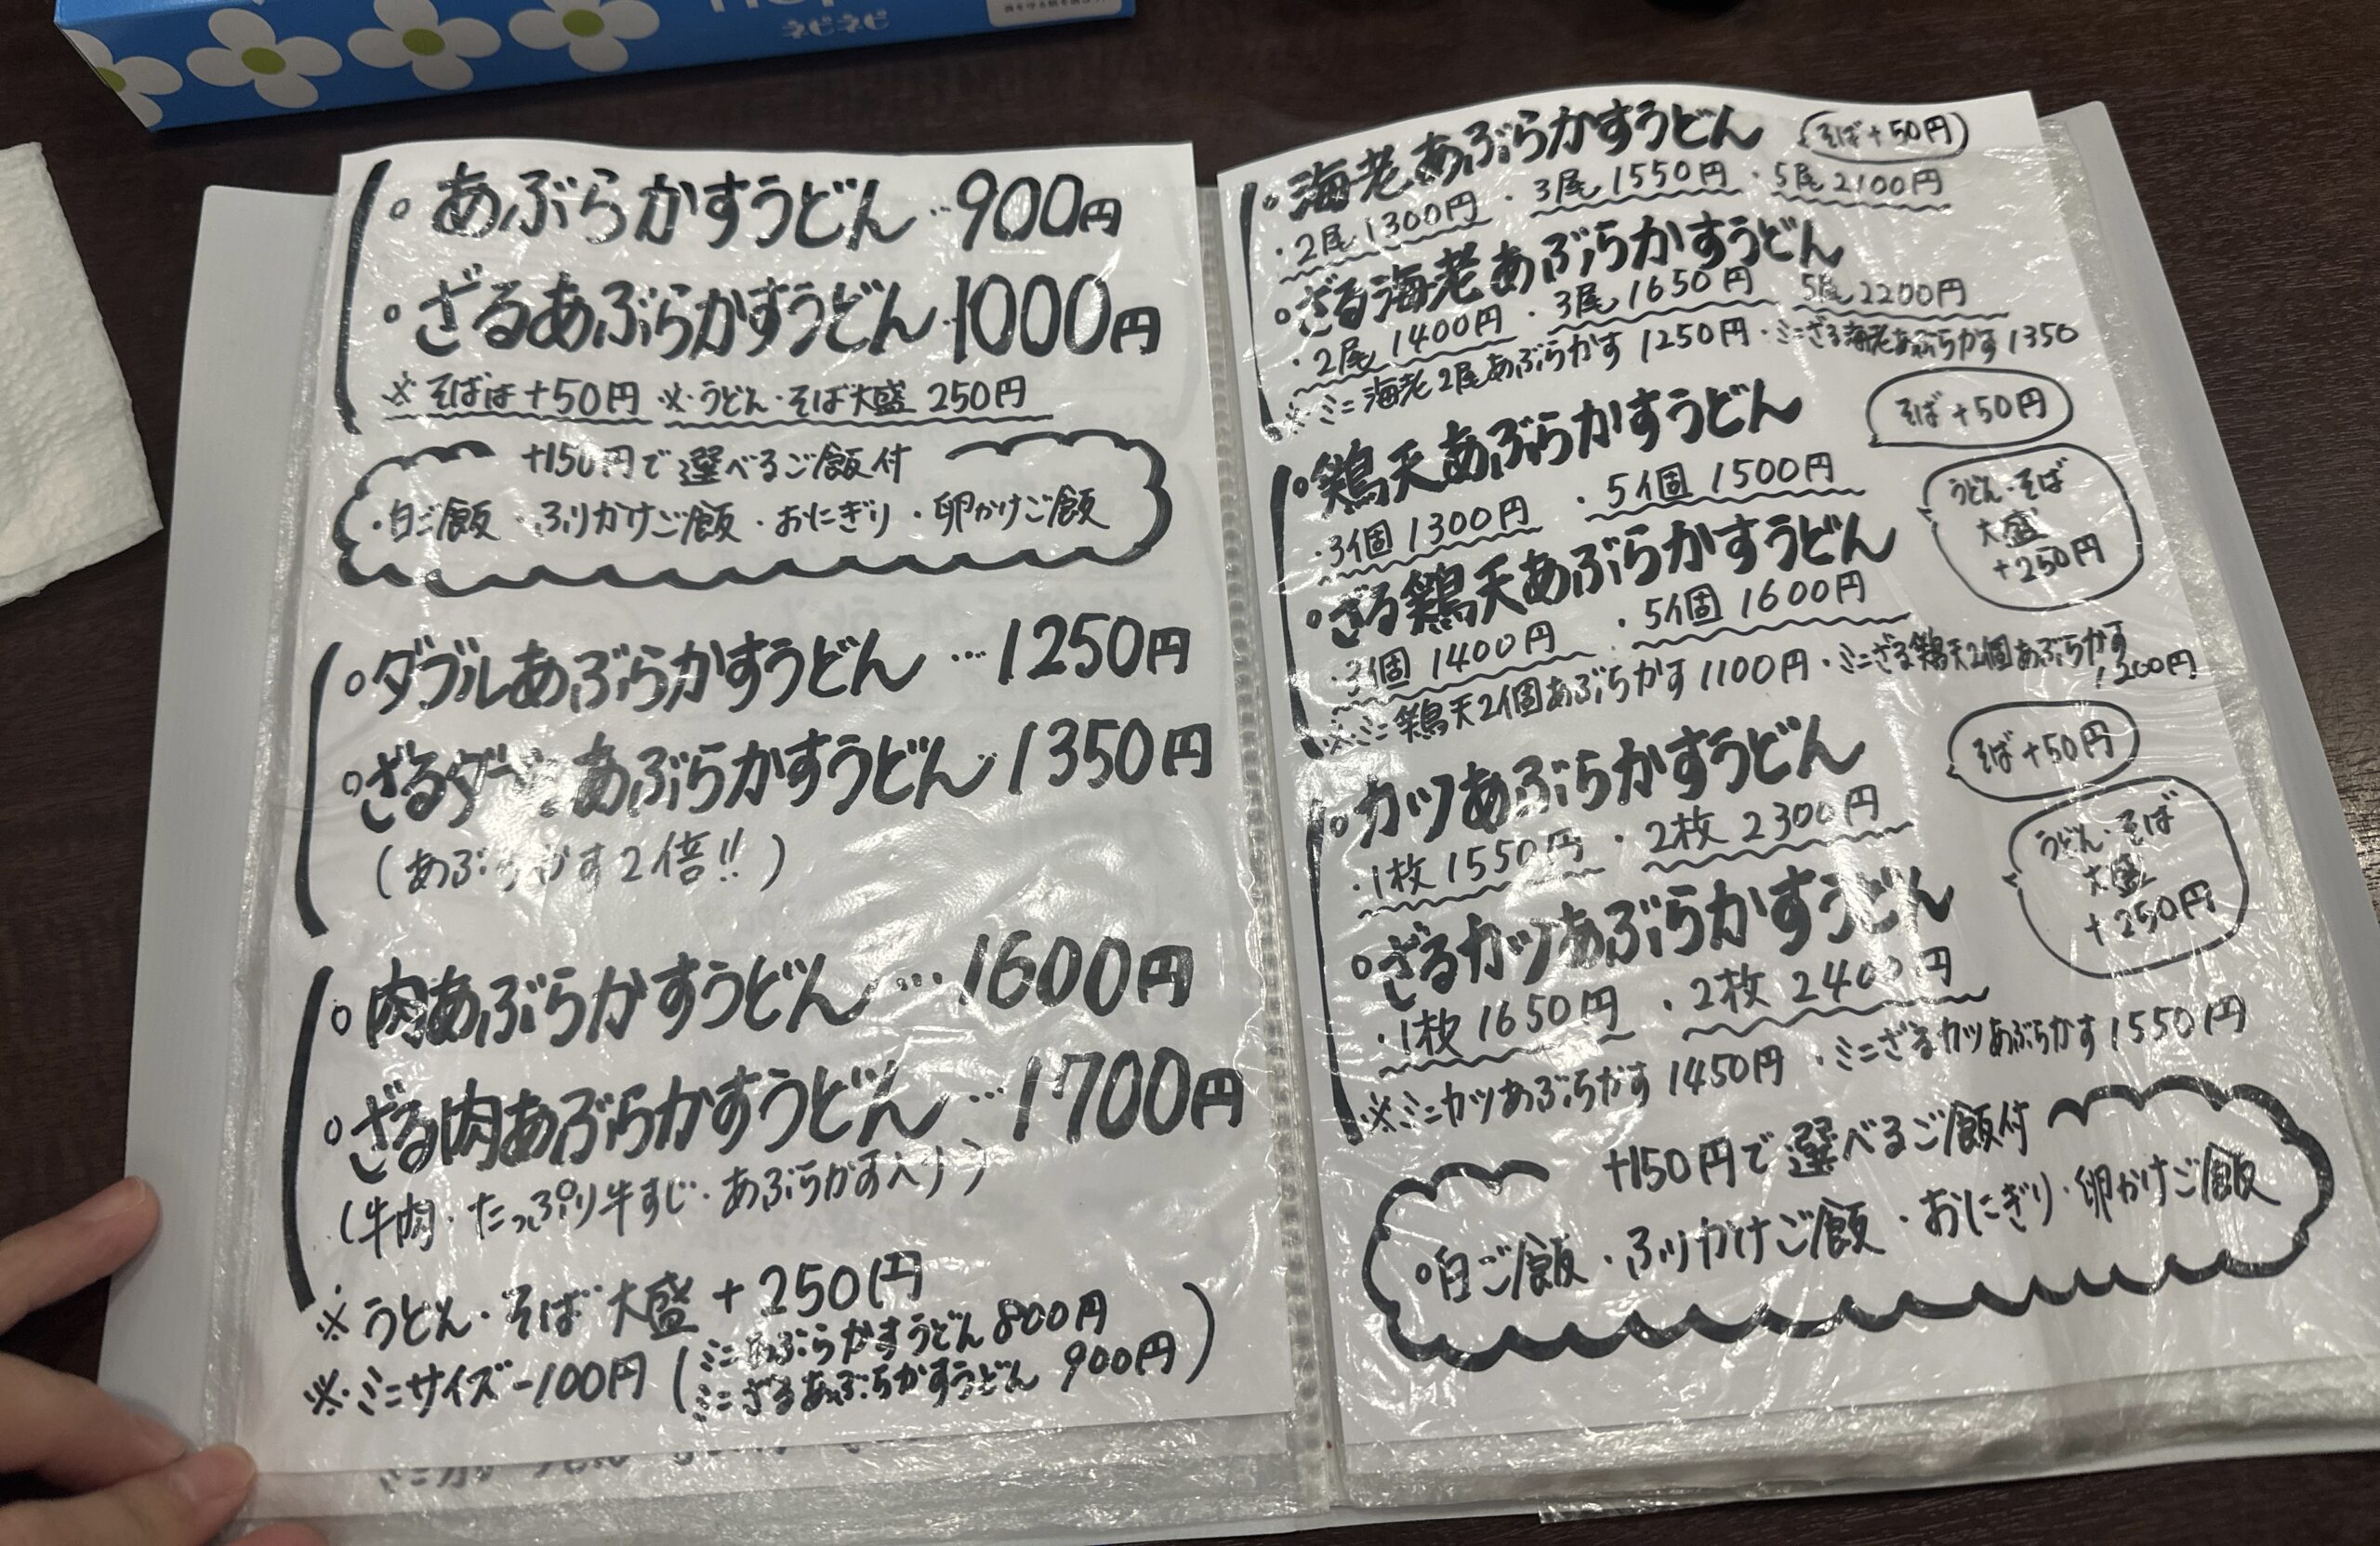 ネピネピ
。あぶらかすうどん…900円
。ざるあぶらかすうどん…1000円
※そばは+50円 ※・うどん・そば大盛 250円
+150円で選べるご飯付
・白ご飯・ふりかけご飯・おにぎり・卵かけご飯
。ダブルあぶらかすうどん…1250円
。ざるダブルあぶらかすうどん…1350円
(あぶらかす2倍!!)
。肉あぶらかすうどん…1600円
。ざる肉あぶらかすうどん…1700円
(牛肉・たっぷり牛すじ・あぶらかす入り)
※うどん・そば大盛+250円
※・ミニサイズ-100円(ミニあぶらかすうどん800円
ミニざるあぶらかすうどん 900円)
。海老あぶらかすうどん そば+50円
・2尾1300円・3尾1550円・5尾2100円
。ざる海老あぶらかすうどん
・2尾1400円・3尾1650円 5尾2200円
※ミニ海老2尾あぶらかす1250円・ミニざる海老あぶらかす1350
。鶏天あぶらかすうどん そば+50円
・3個1300円・5個1500円
うどん・そば
大盛
+250円
。ざる鶏天あぶらかすうどん
・3個1400円・5個1600円
※ミニ鶏天2個あぶらかす1100円・ミニざる鶏天2個あぶらかす
1200円
。カツあぶらかすうどん そば+50円
・1枚1550円・2枚2300円
うどん・そば
大盛
+250円
。ざるカツあぶらかすうどん
・1枚1650円・2枚2400円
※ミニカツあぶらかす1450円・ミニざるカツあぶらかす1550円
+150円で選べるご飯付
。白ご飯・ふりかけご飯・おにぎり・卵かけご飯